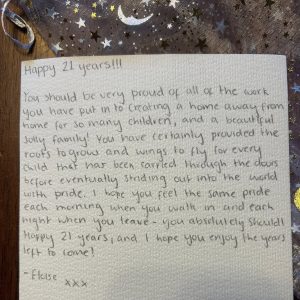 Happy 21 years!!!
You should be very proud of all of the work
you have put in to creating a home away from
home for so many children, and a beautiful
Jolly family! You have certainly provided the
roots to grow and wings to fly for every
child that has been carried through the doors
before eventually striding out into the world
with pride. I hope you feel the same pride
each morning when you walk in and each
night when you leave - you absolutely should!
Happy 21 years, and I hope you enjoy the years
left to come!
- Eloise xxx